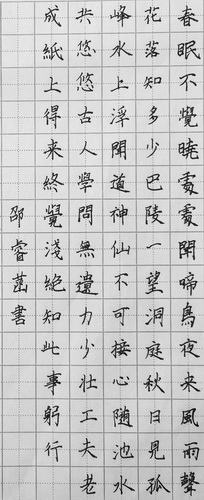 春眠不覺曉處處聞啼鳥夜来風雨聲
花落知多少巴陵一望洞庭秋日見孤
峰水上浮聞道神仙不可接心随池水
共悠悠古人學問無遺力少壯工夫老
成紙上得来終覺淺絶知此事躬行
邵睿菡書